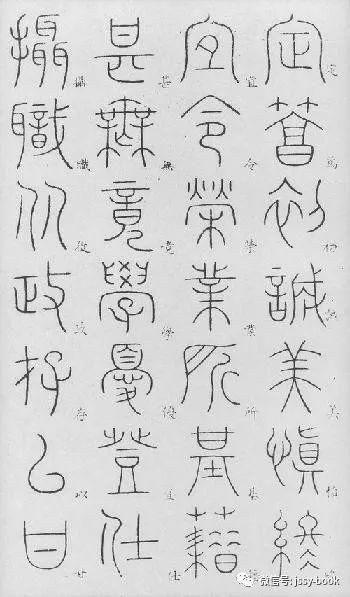 定篤初誠美慎終
宜令榮業所基藉
甚無竟學優登仕
攝職從政存以甘
微信号: jssy-book